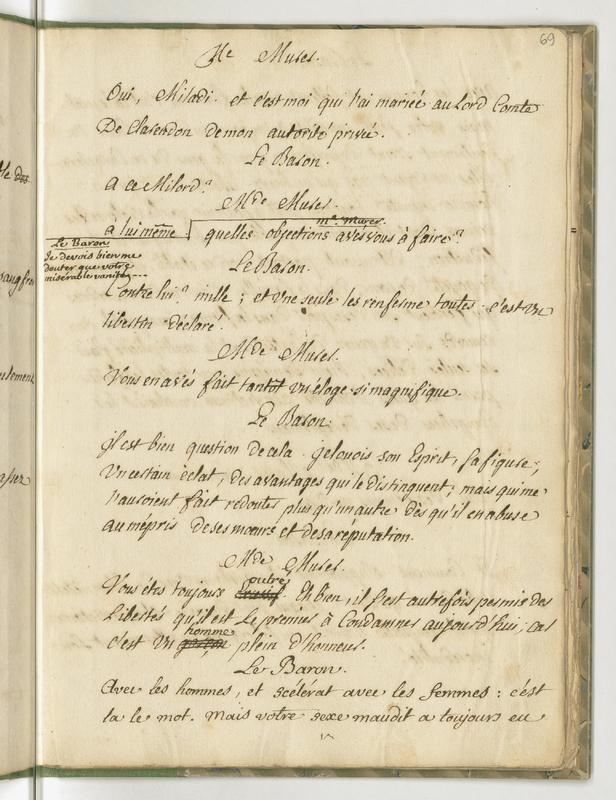 69
Mde Murer.
Oui, Miladi. et c'est moi qui l'ai mariée au Lord Comte
De Clarendon de mon autorité privée.
Le Baron.
a ce Milord?
Mde Murer.
à lui même
md Murer.
quelles objections avésvous à faire?
Le Baron
Je devois bien me
douter que votre
misérable vanité....
Le Baron.
Contre lui? mille; et une seule les renferme toutes. c'est un
libertin déclaré.
Mde Murer.
Vous en avés fait tantôt un éloge si magnifique.
Le Baron.
il est bien question de cela. je louois son Esprit, sa figure,
Un certain éclat, des avantages qui le distinguent; mais qui me
l'auroient fait redouter plus qu'un autre dès qu'il en abuse
au mépris de ses mœurs et de sa réputation.
Mde Murer.
Vous étes toujours outré. Eh bien, il s'est autrefois permis des
Libertés qu'il est le premier à Condamner aujourd'hui; car
c'est un homme plein d'honneur.
Le Baron.
Avec les hommes, et scélérat avec les femmes: c'est
la le mot. mais votre sexe maudit a toujours eu